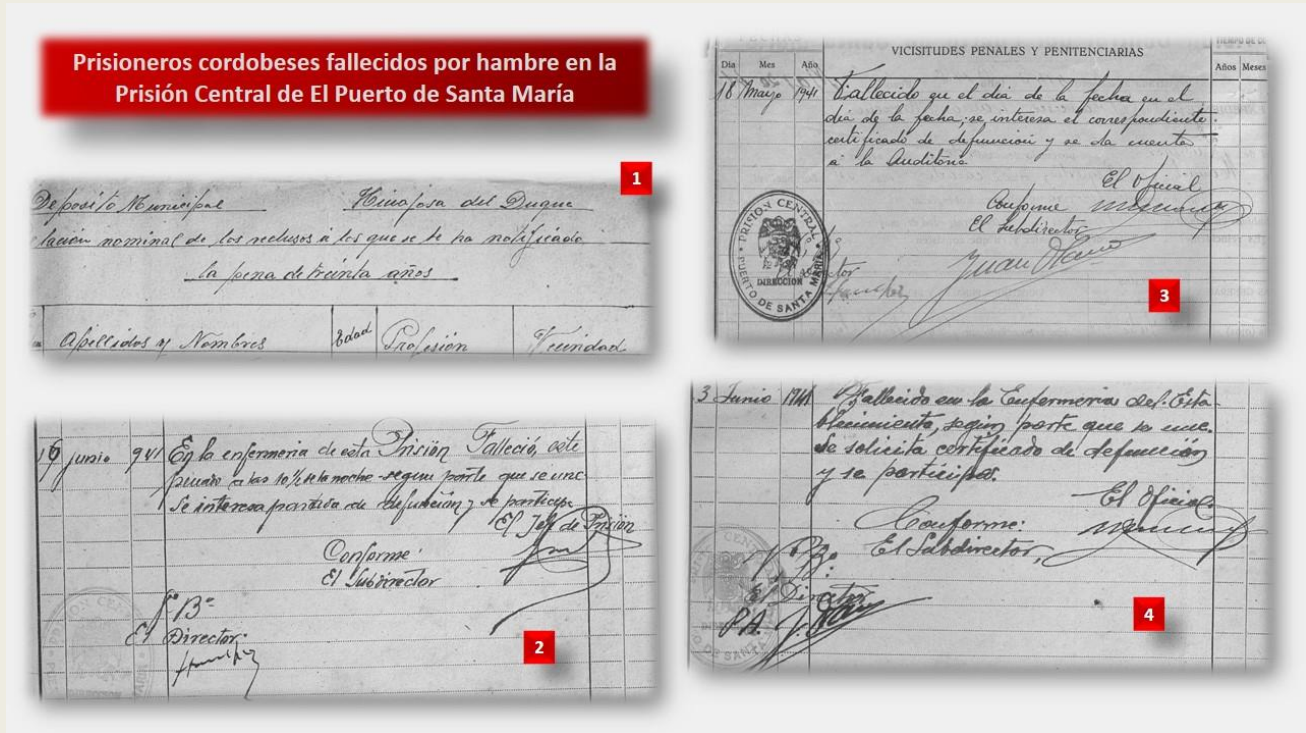 Prisioneros cordobeses fallecidos por hambre en la
Prisión Central de El Puerto de Santa María
1
Deposito Municipal Hinojosa del Duque
lación nominal de los reclusos a los que se le ha notificado
la pena de treinta años
Apellidos y Nombres Edad Profesión Vecindad
19 junio 941 En la enfermeria de esta Prisión Falleció, este
penado a las 10½ de la noche segun parte que se une
Se interesa partida de defunción y se participa
El Jefe de Prisión
Conforme:
El Subdirector
Vº Bº
El Director:
2
VICISITUDES PENALES Y PENITENCIARIAS
Dia Mes Año Años Meses
18 Mayo 1941 Fallecido en el dia de la fecha en el
dia de la fecha, se interesa el correspondiente
certificado de defunción y se da cuenta
a la Auditoria
El Oficial
Conforme
El Subdirector
PRISION CENTRAL
DIRECCION
PUERTO DE SANTA MARIA
3
3 Junio 1941 Fallecido en la Enfermeria del Esta-
blecimiento, según parte que se une.
Se solicita certificado de defunción
y se participa.
El Oficial
Conforme:
El Subdirector,
Vº Bº
El Director
P.A.
4